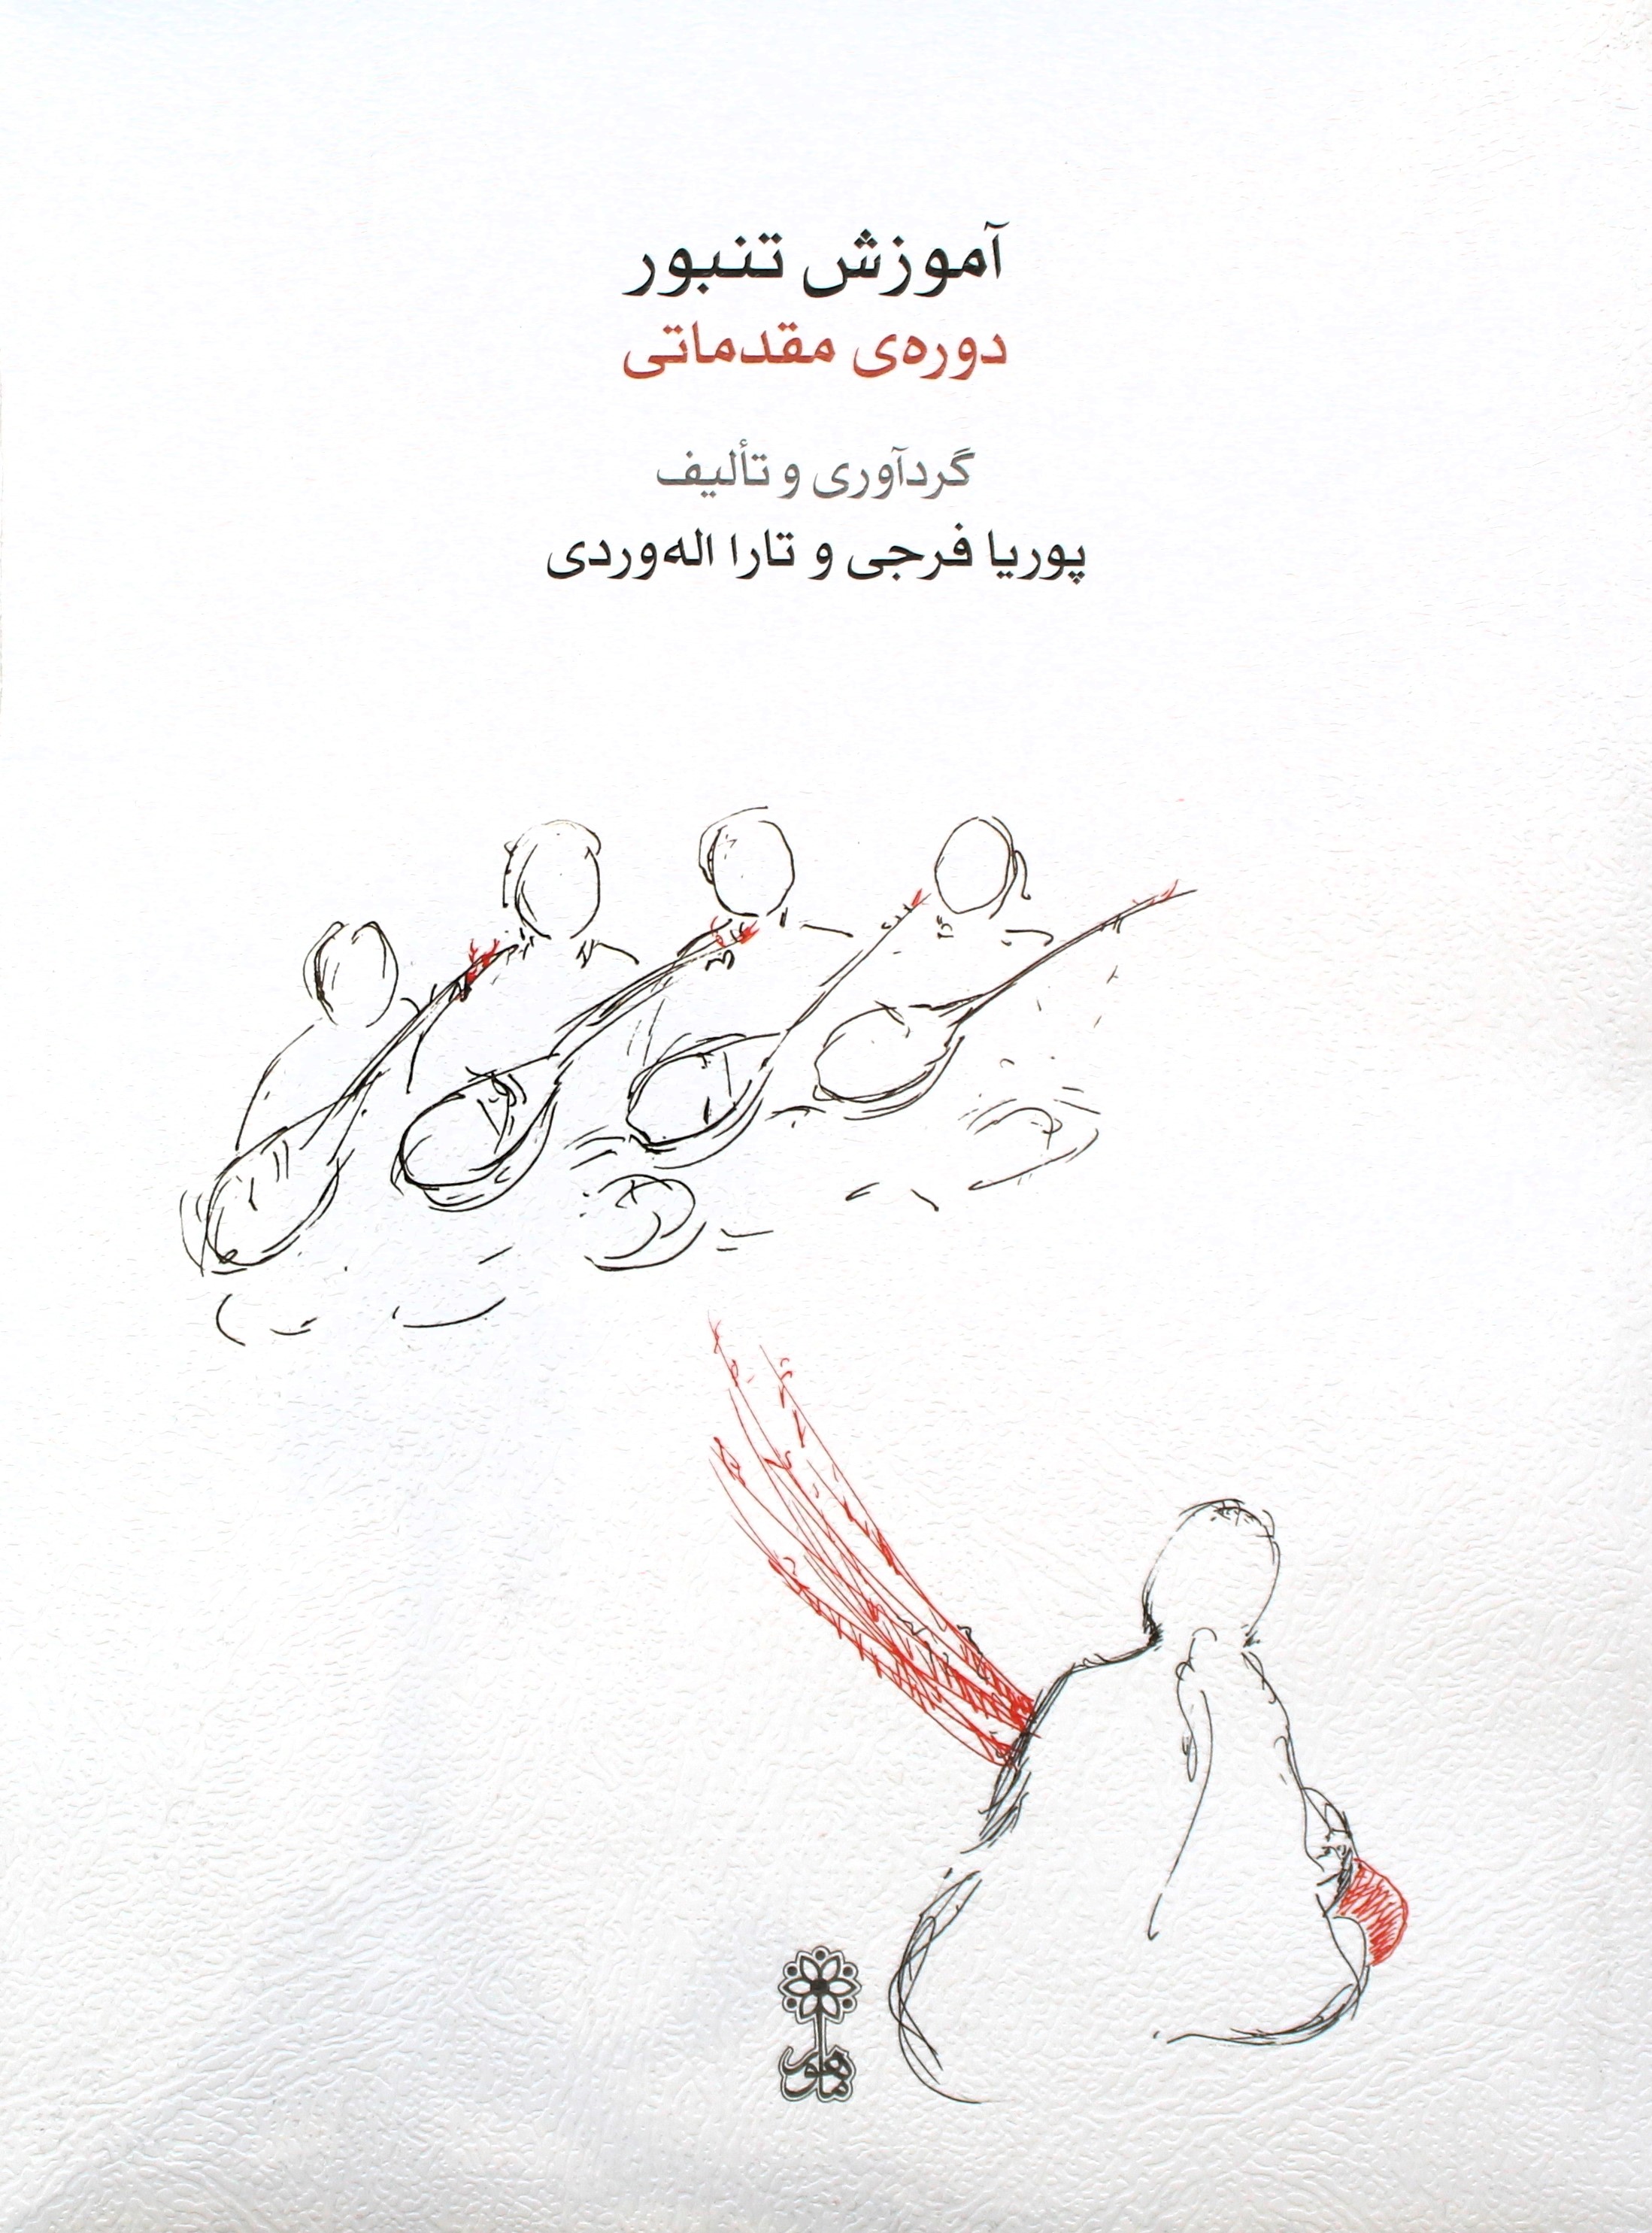 آموزش تنبور
دوره‌ی مقدماتی
گردآوری و تألیف
پوریا فرجی و تارا اله‌وردی
ماهور